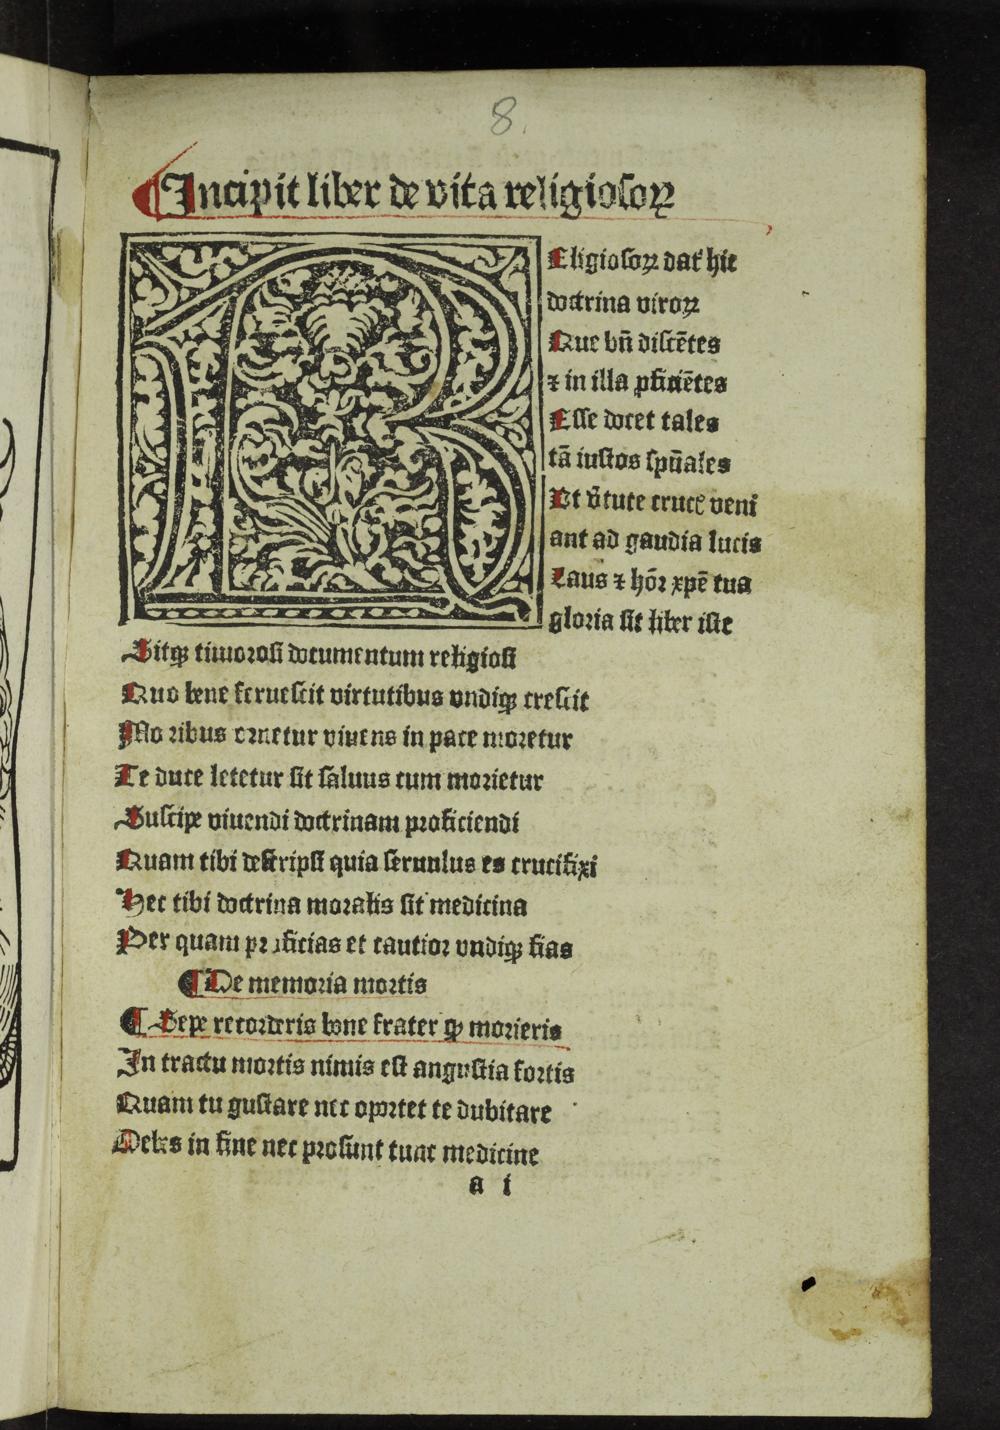 8.
¶Incipit liber de vita religiosoꝝ
REligiosoꝝ dat᷑ hic
doctrina viroꝝ
Que bn̄ discētes
⁊ in illa ꝓficiētes
Esse docet tales
tā iustos sp̄uales
Ut v̄tute cruc̄ veni
ant ad gaudia lucis
Laus ⁊ hōr xp̄e tua
gloria sit liber iste
Sitqꝫ timorosi documentum religiosi
Quo bene feruescit virtutibus vndiqꝫ crescit
Mo ribus ornetur viuens in pace moretur
Te duce letetur sit saluus cum morietur
Suscipe viuendi doctrinam proficiendi
Quam tibi descripsi quia seruulus es crucifixi
Hec tibi doctrina moralis sit medicina
Per quam proficias et cautior vndiqꝫ fias
¶De memoria mortis
¶ Sepe recorderis bone frater ꝙ morieris
In tractu mortis nimis est angustia fortis
Quam tu gustare nec oportet te dubitare
Debes in fine nec prosunt tunc medicine
a i